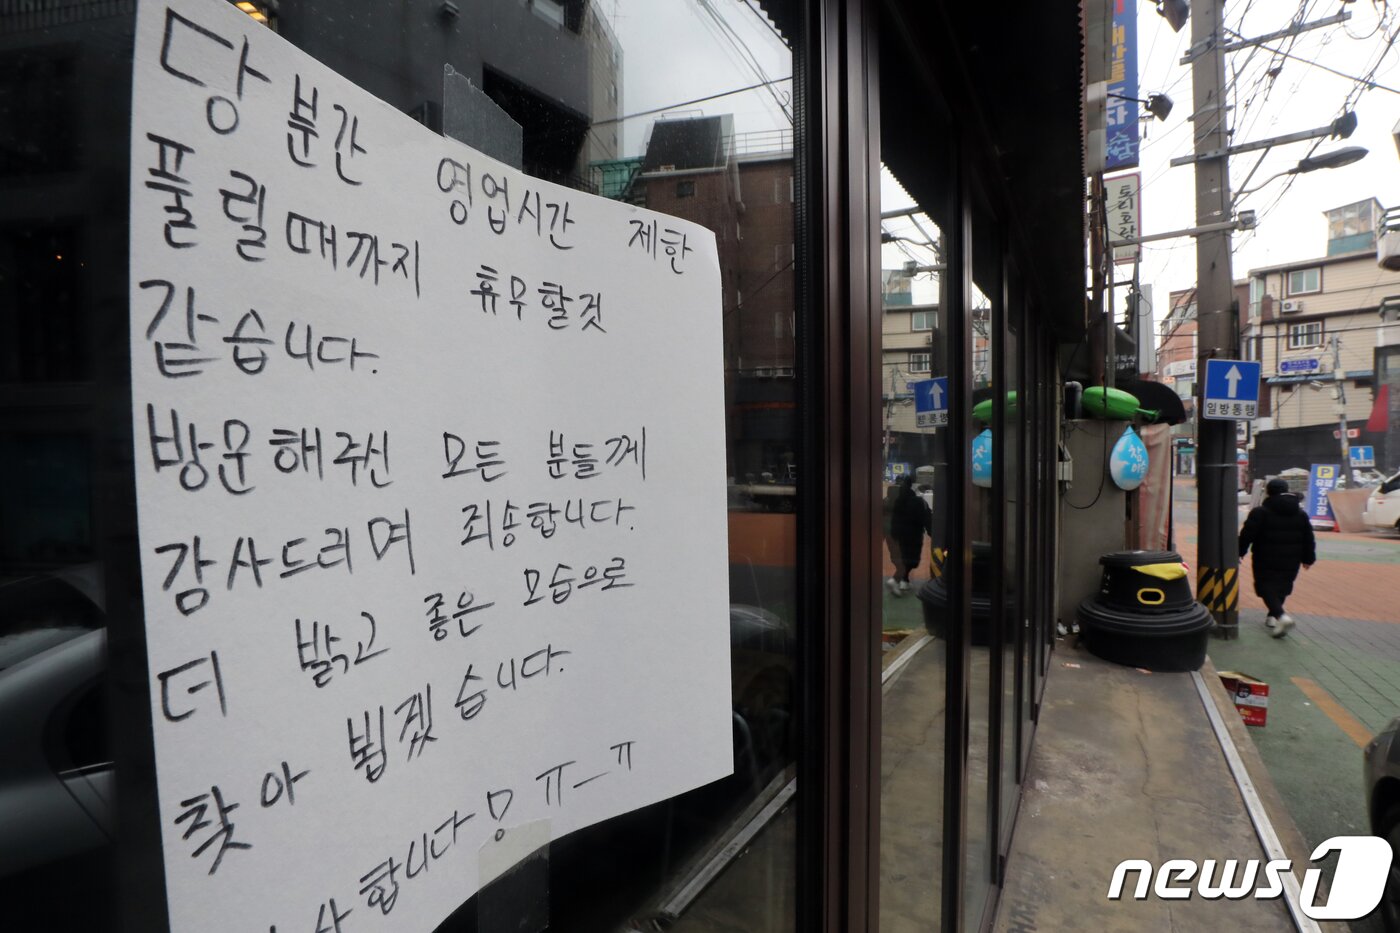 당분간 영업시간 제한
풀릴때까지 휴무할것
같습니다.
방문해주신 모든 분들께
감사드리며 죄송합니다.
더 밝고 좋은 모습으로
찾아 뵙겠습니다.
사합니다! ㅠ_ㅠ
토리호랑
일방통행
참이슬
P
유료주차장
news1